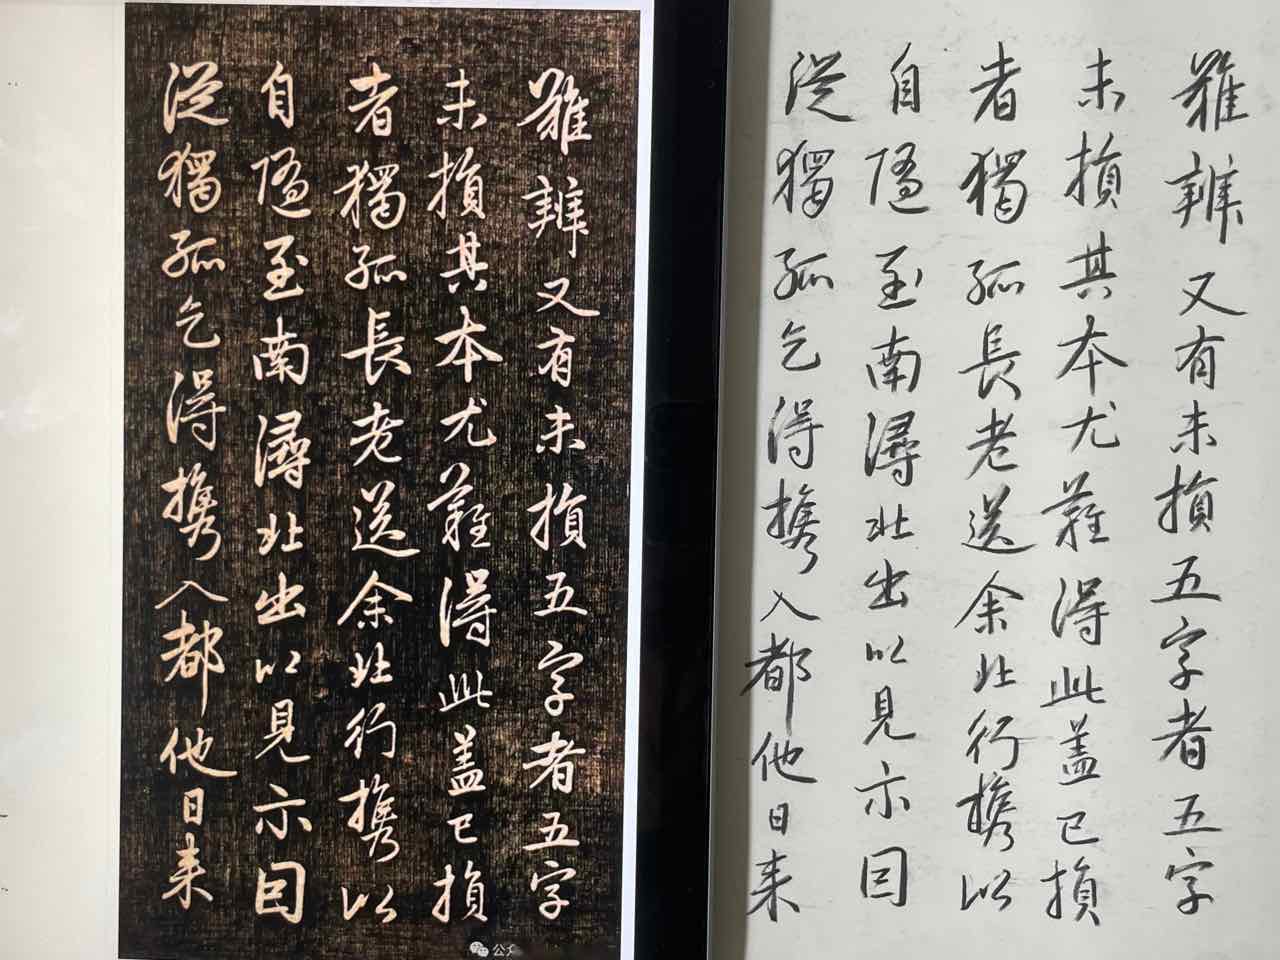 難辨又有未損五字者五字
未損其本尤難得此蓋已損
者獨孤長老送余北行攜以
自隨至南潯北出以見示因
從獨孤乞得攜入都他日来
公
難辨又有未損五字者五字
未損其本尤難得此蓋已損
者獨孤長老送余北行攜以
自隨至南潯北出以見示因
從獨孤乞得攜入都他日来